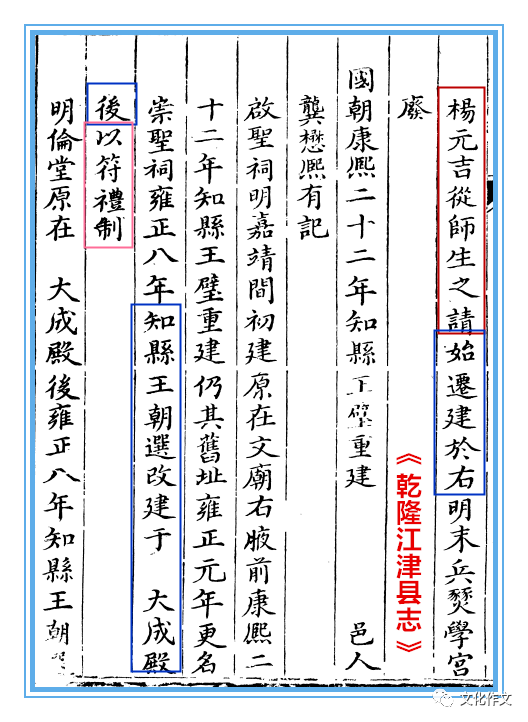 楊元吉從師生之請始遷建於右明末兵燹學宮
廢
國朝康熙二十二年知縣王璧重建　邑人
龔懋熙有記
啟聖祠明嘉靖間初建原在文廟右腋前康熙二
十二年知縣王璧重建仍其舊址雍正元年更名
崇聖祠雍正八年知縣王朝選改建于　大成殿
後以符禮制
明倫堂原在　大成殿後雍正八年知縣王朝
《乾隆江津县志》
文化作文